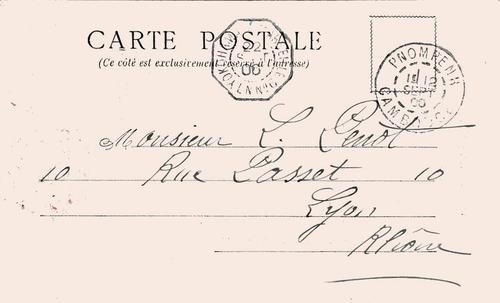 CARTE POSTALE
(Ce côté est exclusivement réservé à l'adresse)
PNOMPENH
12
SEPT
06
CAMBODGE
22
06
Monsieur L. Penot
10 Rue Passet 10
Lyon
Rhône